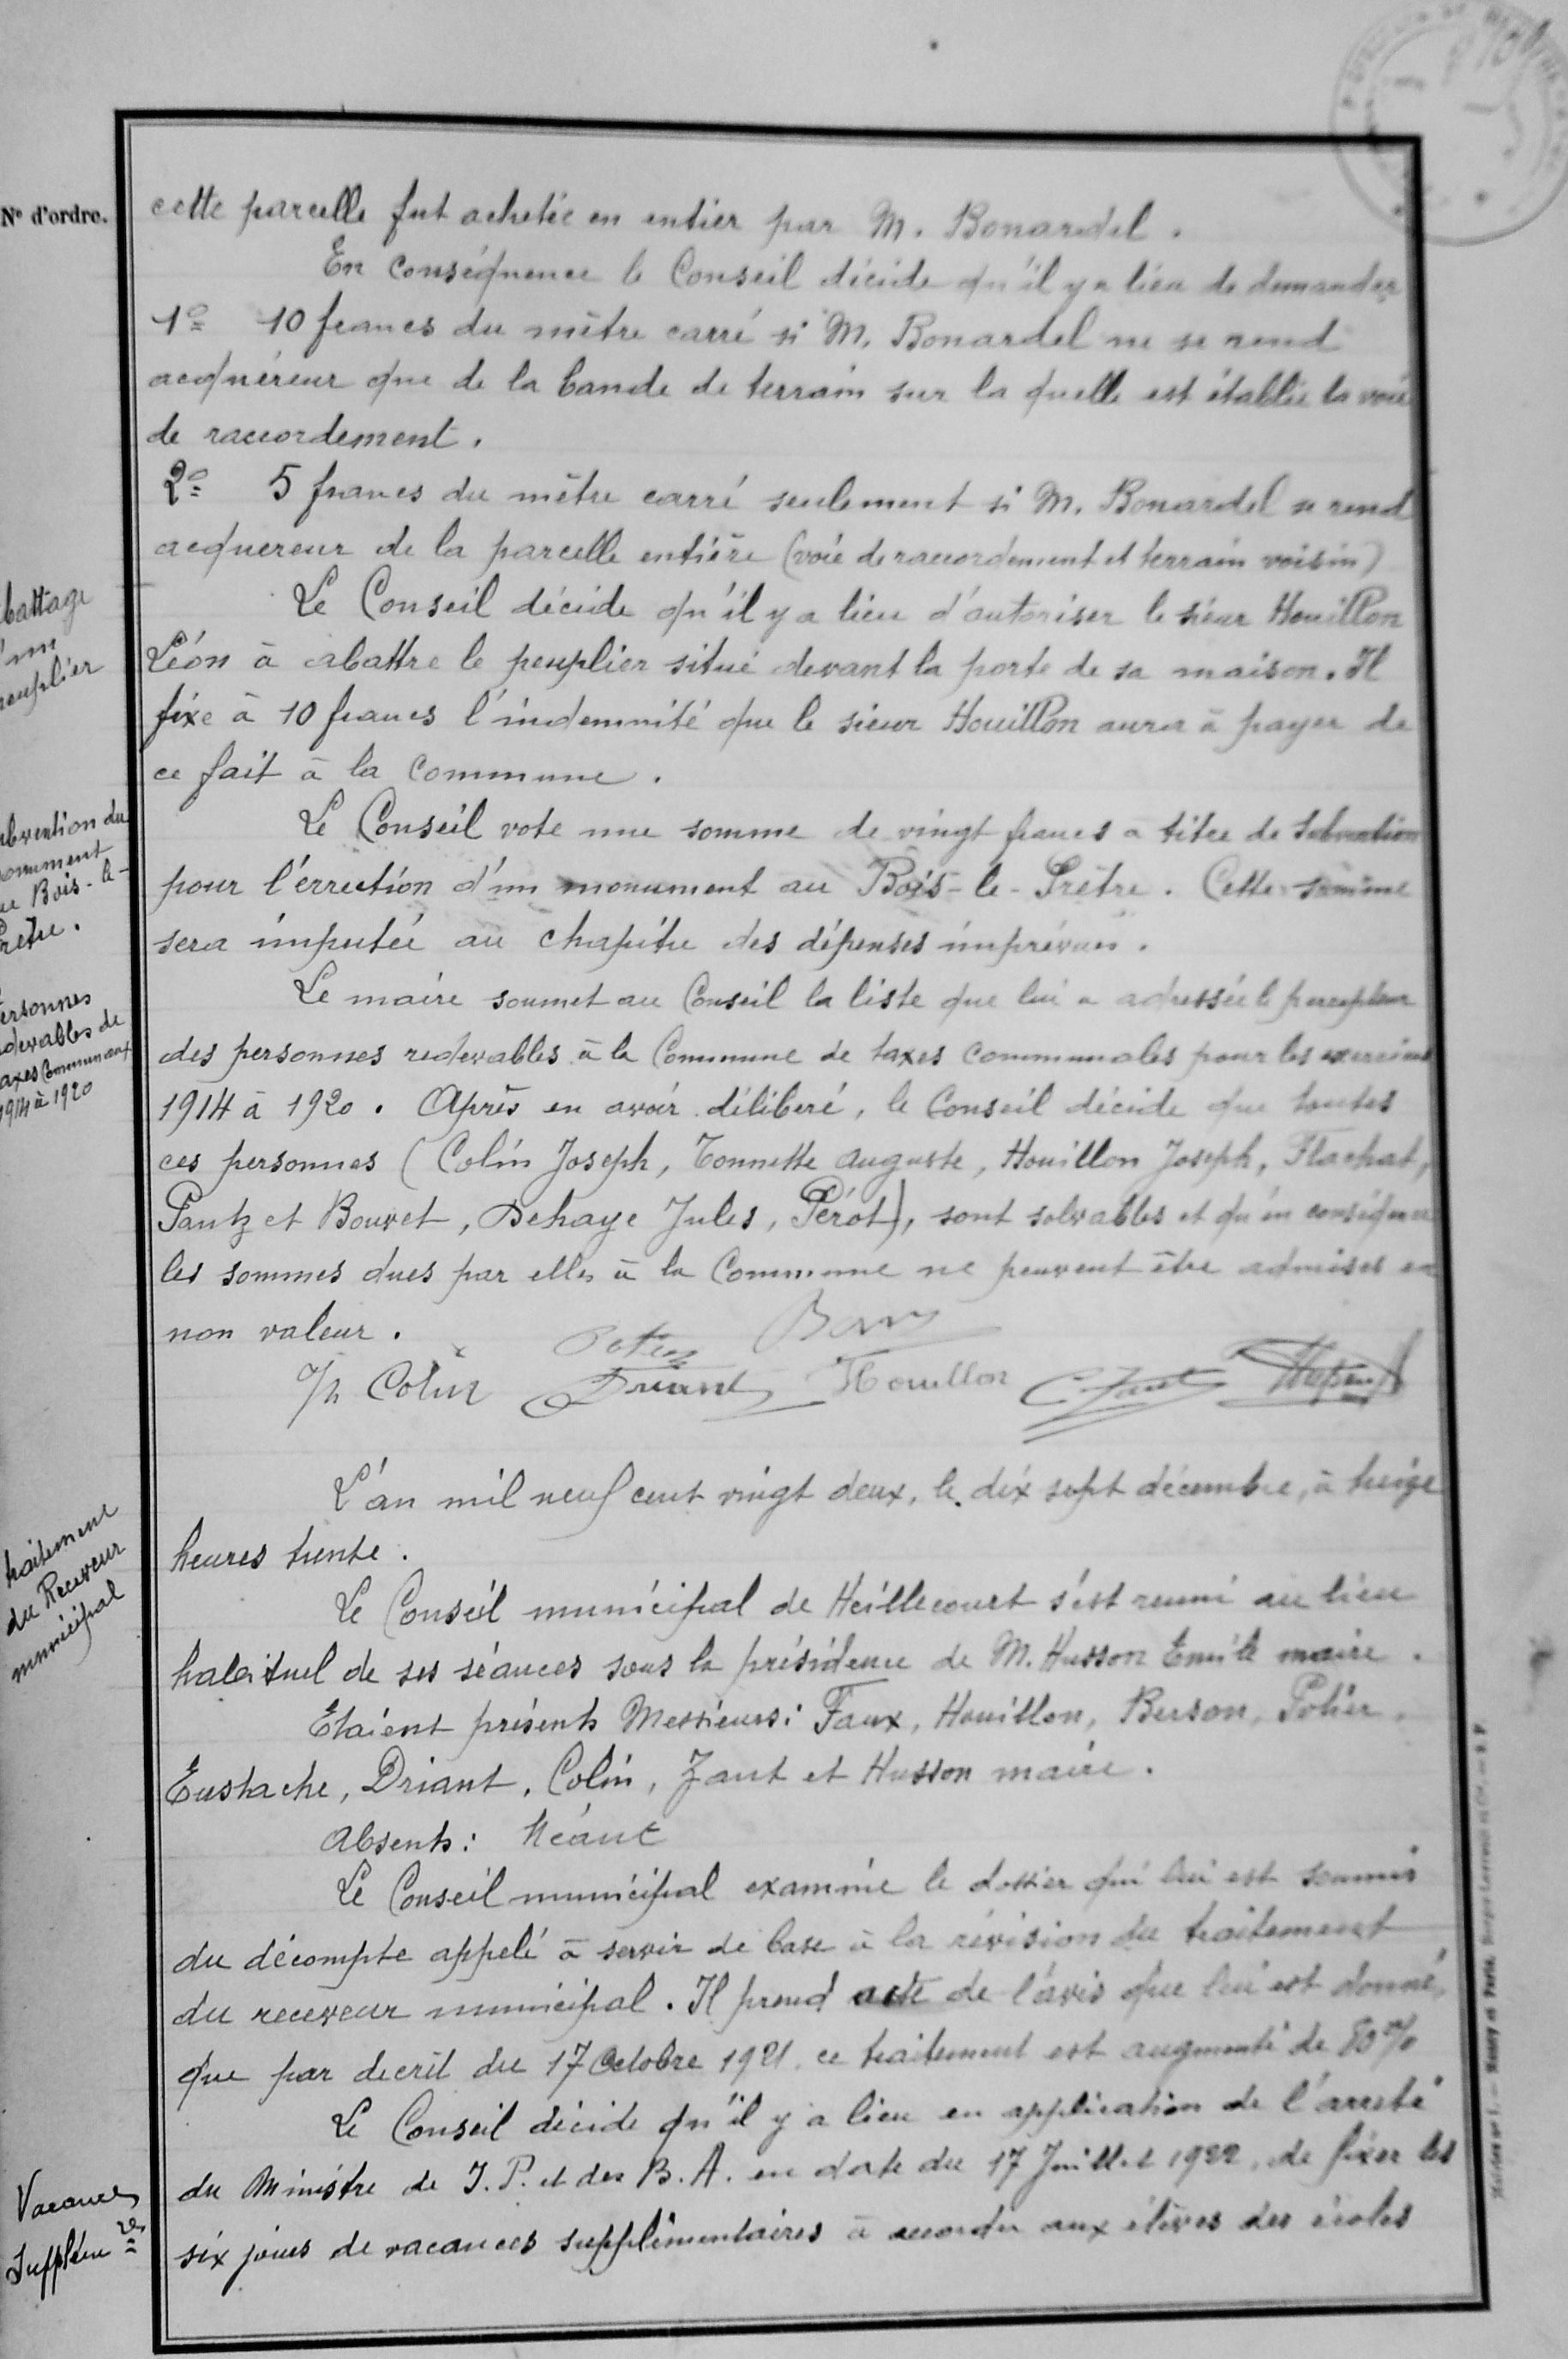 N° d'ordre.
cette parcelle fut achetée en entier par M. Bonardel.
En conséquence le Conseil décide qu'il y a lieu de demander
1° 10 francs du mètre carré si M. Bonardel ne se rend
acquéreur que de la bande de terrain sur la quelle est établie la voie
de raccordement.
2° 5 francs du mètre carré seulement si M. Bonardel se rend
acquereur de la parcelle entière (voie de raccordement et terrain voisin)
battage
d'un
peuplier
Le Conseil décide qu'il y a lieu d'autoriser le sieur Houillon
Léon à abattre le peuplier situé devant la porte de sa maison. Il
fixe à 10 francs l'indemnité que le sieur Houillon aura à payer de
ce fait à la Commune.
ubvention du
onument
au Bois-le-
rêtre.
Le Conseil vote une somme de vingt francs à titre de subvention
pour l'érrection d'un monument au Bois-le-Prêtre. Cette somme
sera imputée au chapitre des dépenses imprévues.
ersonnes
edevables de
axes Communaux
1914 à 1920
Le maire soumet au Conseil la liste que lui a adressée le percepteur
des personnes redevables à la Commune de taxes communales pour les exercices
1914 à 1920. Après en avoir déliberé, le Conseil décide que toutes
ces personnes (Colin Joseph, Tonnette Auguste, Houillon Joseph, Flachat,
Pantz et Bouvet, Dehaye Jules, Pérot), sont solvables et qu'en conséquence
les sommes dues par elles à la Commune ne peuvent être admises en
non valeur.
Potier
Colin Driant Houillon Zant
L'an mil neuf cent vingt deux, le dix sept décembre, à treize
heures trente.
traitement
du Receveur
municipal
Le Conseil municipal de Heillecourt s'est reuni au lieu
habituel de ses séances sous la présidence de M. Husson Emile maire.
Etaient présents Messieurs: Faux, Houillon, Berson, Potier,
Eustache, Driant, Colin, Zant et Husson maire.
Absents: Néant
Le Conseil municipal examine le dossier qui lui est soumis
du décompte appelé à servir de base à la révision du traitement
du receveur municipal. Il prend acte de l'avis que lui est donné,
que par decrêt du 17 Octobre 1921 ce traitement est augmenté de %
Vacances
Supplém res
Le Conseil décide qu'il y a lieu en application de l'arreté
du Ministre de I. P. et des B. A. en date du 17 Juillet 1922, de fixer les
six jours de vacances supplémentaires à accorder aux élèves des écoles